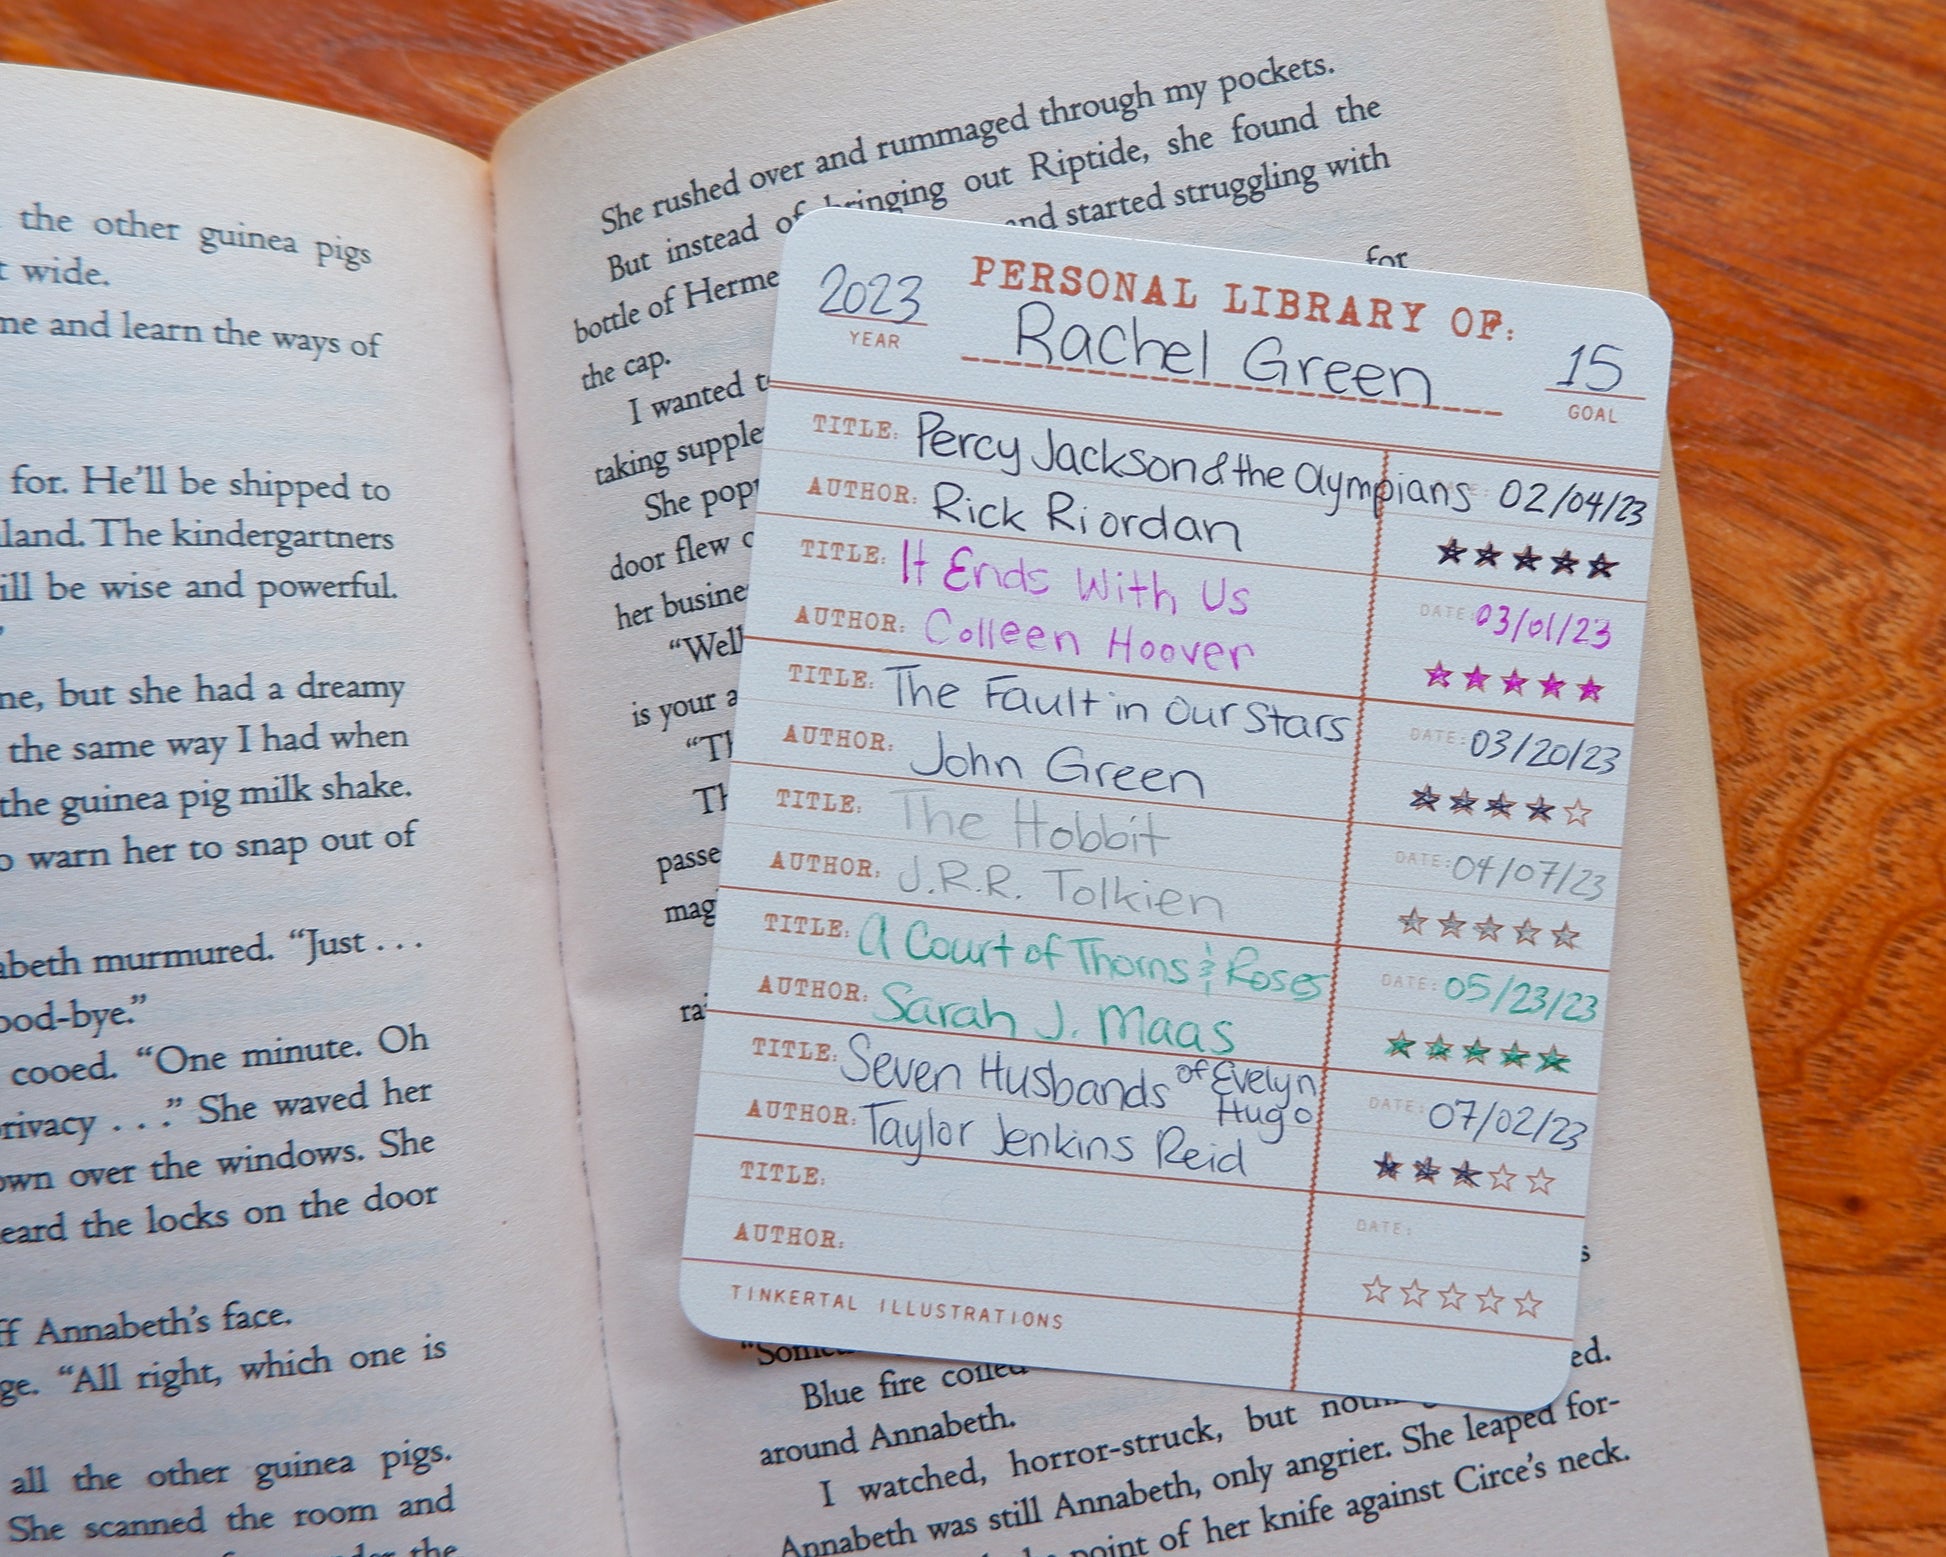 the other guinea pigs
wide.
me and learn the ways of
for. He'll be shipped to
land. The kindergartners
ill be wise and powerful.
”
ne, but she had a dreamy
the same way I had when
the guinea pig milk shake.
o warn her to snap out of
abeth murmured. “Just . . .
ood-bye.”
cooed. “One minute. Oh
rivacy . . .” She waved her
own over the windows. She
eard the locks on the door
ff Annabeth's face.
ge. “All right, which one is
all the other guinea pigs.
She scanned the room and
the
She rushed over and rummaged through my pockets.
But instead of bringing out Riptide, she found the
bottle of Herme and started struggling with
for
the cap.
I wanted t
taking supple
She pop
door flew
her busine
“Well
is your a
“Th
Th
passe
mag
rai
s
ed.
Blue fire coiled
around Annabeth.
I watched, horror-struck, but
Annabeth was still Annabeth, only angrier. She leaped for-
point of her knife against Circe's neck.
2023
YEAR
PERSONAL LIBRARY OF:
Rachel Green
15
GOAL
TITLE: Percy Jackson & the Olympians 02/04/23
AUTHOR: Rick Riordan
TITLE: It Ends With Us
DATE: 03/01/23
AUTHOR: Colleen Hoover
TITLE: The Fault in Our Stars
DATE: 03/20/23
AUTHOR: John Green
TITLE: The Hobbit
DATE: 04/07/23
AUTHOR: J.R.R. Tolkien
TITLE: A Court of Thorns & Roses
DATE: 05/23/23
AUTHOR: Sarah J. Maas
TITLE: Seven Husbands of Evelyn Hugo
DATE: 07/02/23
AUTHOR: Taylor Jenkins Reid
TITLE:
DATE:
AUTHOR:
TINKERTAL ILLUSTRATIONS